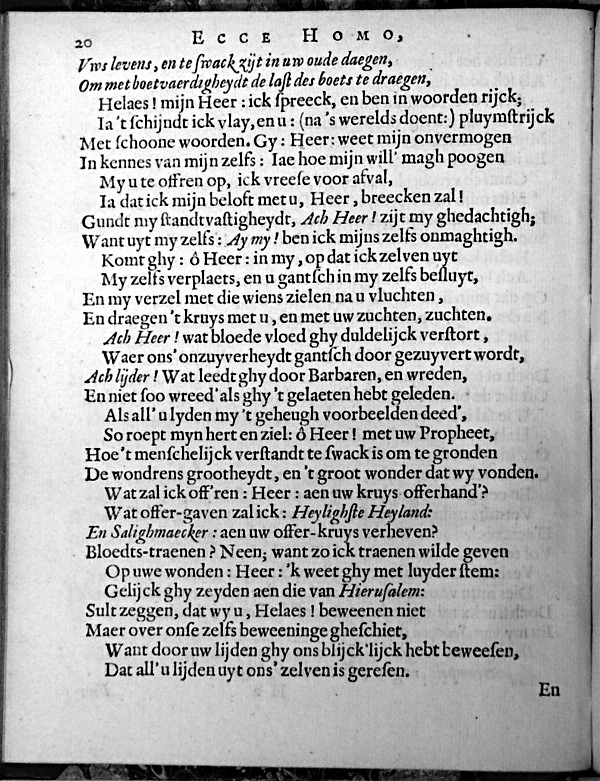 20 ECCE HOMO,
Vws levens, en te swack zijt in uw oude daegen,
Om met boetvaerdigheydt de last des boets te draegen,
Helaes! mijn Heer: ick spreeck, en ben in woorden rijck;
Ia 't schijndt ick vlay, en u: (na 's werelds doent:) pluymstrijck
Met schoone woorden. Gy: Heer: weet mijn onvermogen
In kennes van mijn zelfs: Iae hoe mijn will' magh poogen
My u te offren op, ick vreese voor afval,
Ia dat ick mijn beloft met u, Heer, breecken zal!
Gundt my standtvastigheydt, Ach Heer! zijt my ghedachtigh;
Want uyt my zelfs: Ay my! ben ick mijns zelfs onmaghtigh.
Komt ghy: ô Heer: in my, op dat ick zelven uyt
My zelfs verplaets, en u gantsch in my zelfs besluyt,
En my verzel met die wiens zielen na u vluchten,
En draegen 't kruys met u, en met uw zuchten, zuchten.
Ach Heer! wat bloede vloed ghy duldelijck verstort,
Waer ons' onzuyverheydt gantsch door gezuyvert wordt,
Ach lijder! Wat leedt ghy door Barbaren, en wreden,
En niet soo wreed' als ghy 't gelaeten hebt geleden.
Als all' u lyden my 't geheugh voorbeelden deed',
So roept myn hert en ziel: ô Heer! met uw Propheet,
Hoe 't menschelijck verstandt te swack is om te gronden
De wondrens grootheydt, en 't groot wonder dat wy vonden.
Wat zal ick off'ren: Heer: aen uw kruys offerhand'?
Wat offer-gaven zal ick: Heylighste Heyland:
En Salighmaecker: aen uw offer-kruys verheven?
Bloedts-traenen? Neen; want zo ick traenen wilde geven
Op uwe wonden: Heer: 'k weet ghy met luyder stem:
Gelijck ghy zeyden aen die van Hierusalem:
Sult zeggen, dat wy u, Helaes! beweenen niet
Maer over onse zelfs beweeninge gheschiet,
Want door uw lijden ghy ons blijck'lijck hebt beweesen,
Dat all' u lijden uyt ons' zelven is geresen.
En